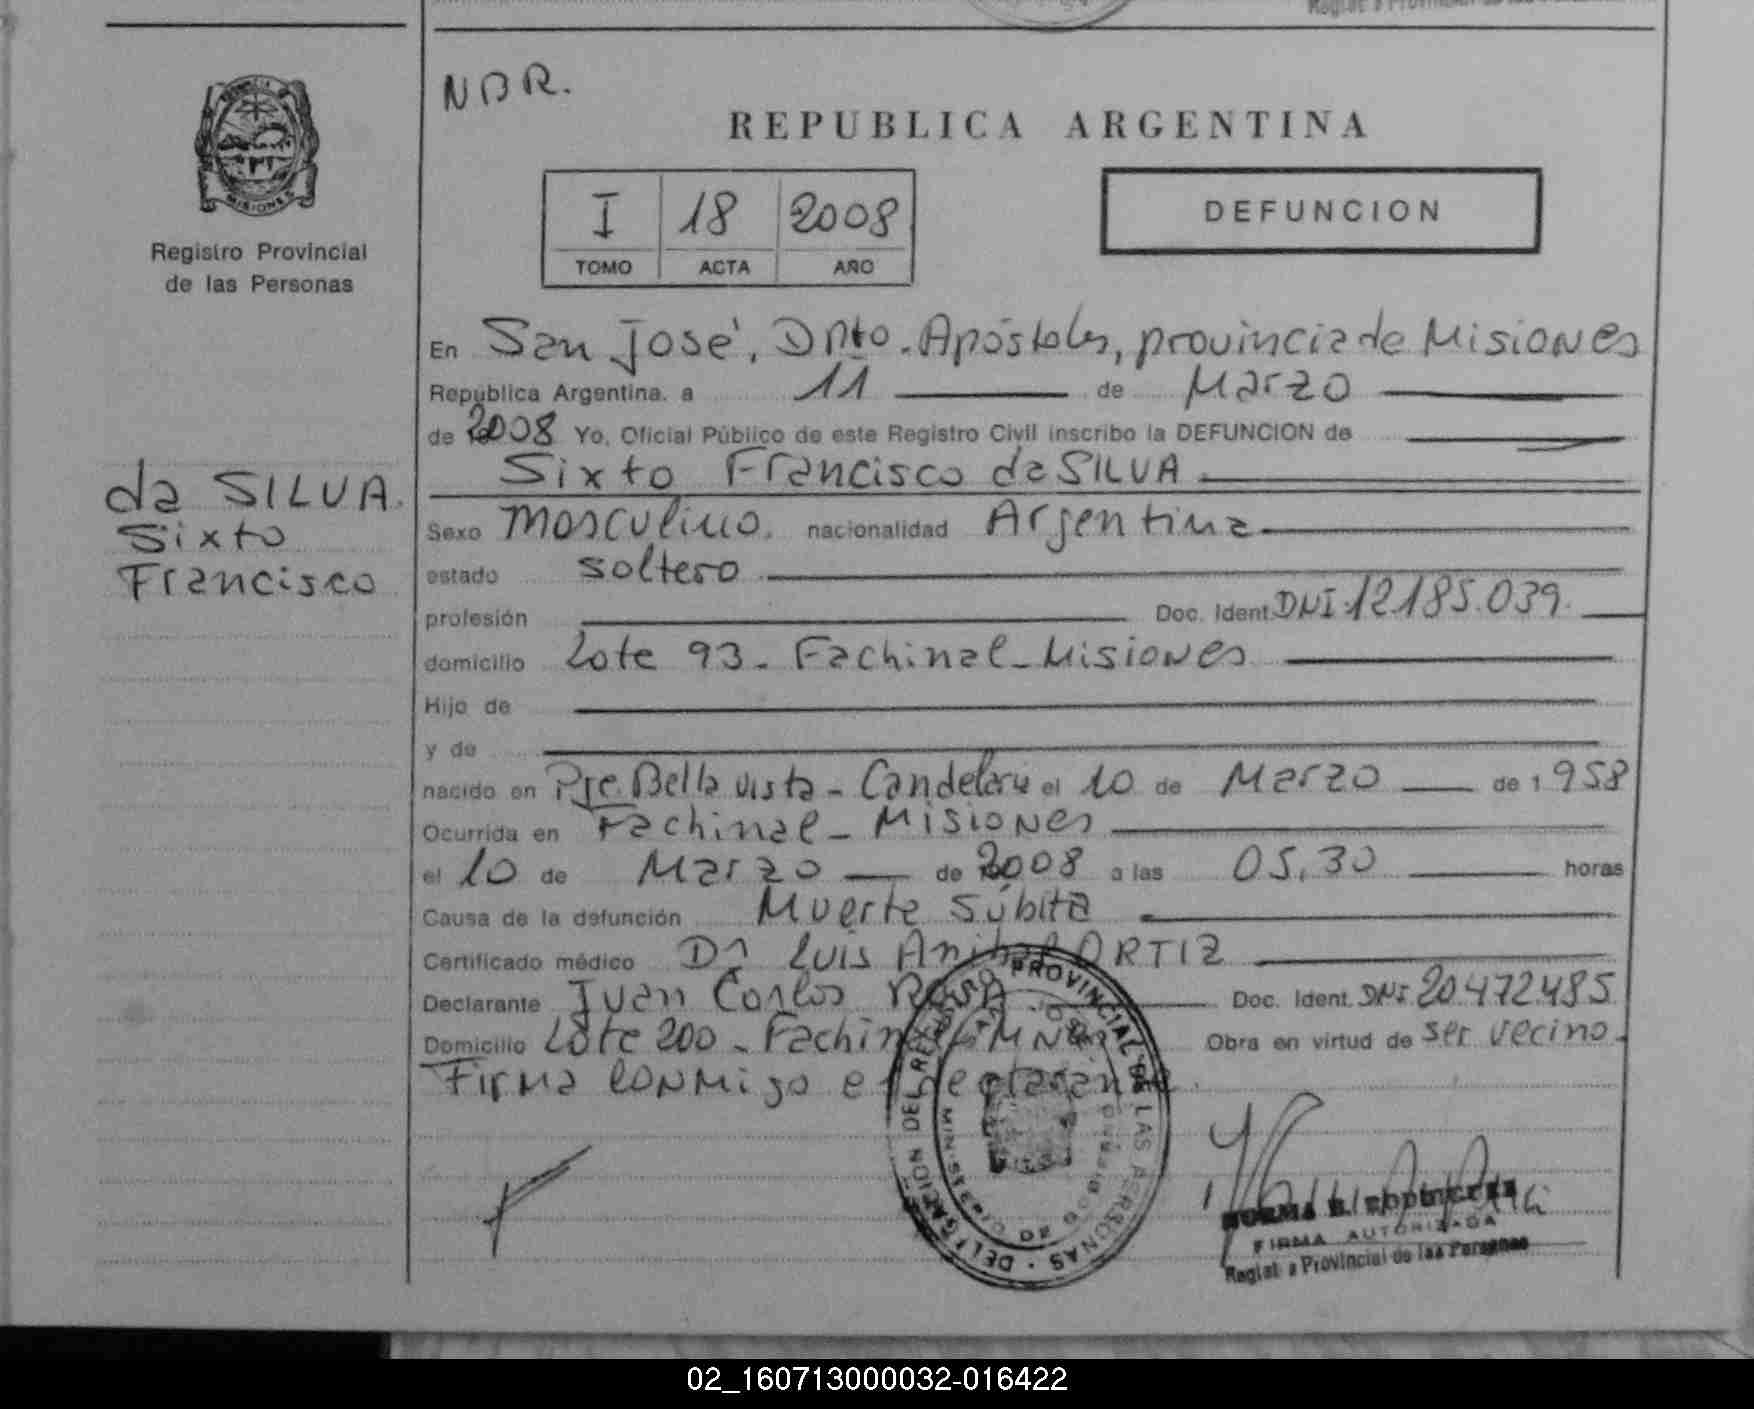 NBR.
REPUBLICA ARGENTINA
PROVINCIA DE
MISIONES
Registro Provincial
de las Personas
I 18 2008
TOMO ACTA AÑO
DEFUNCION
En San José, Dpto. Apóstoles, provincia de Misiones
República Argentina, a 11 de Marzo
de 2008 Yo, Oficial Público de este Registro Civil inscribo la DEFUNCION de
Sixto Francisco da SILVA
da SILVA.
Sixto
Francisco
Sexo masculino. nacionalidad Argentina
estado soltero
profesión Doc. Ident. DNI.12.185.039.
domicilio Lote 93 - Fachinal - Misiones
Hijo de
y de
nacido en Pje. Bella vista - Candelaria el 10 de Marzo de 1958
Ocurrida en Fachinal - Misiones
el 10 de Marzo de 2008 a las 05,30 horas
Causa de la defunción Muerte súbita
Certificado médico Dr Luis Anibal ORTIZ
Declarante Juan Carlos Doc. Ident. DNI 20.472.485
Domicilio Lote 200 - Fachinal - MNES Obra en virtud de ser vecino.
Firma conmigo el Declarante
DELEGACION DEL REGISTRO PROVINCIAL DE LAS PERSONAS
FIRMA AUTORIZADA
Provincial de las Personas
02_160713000032-016422